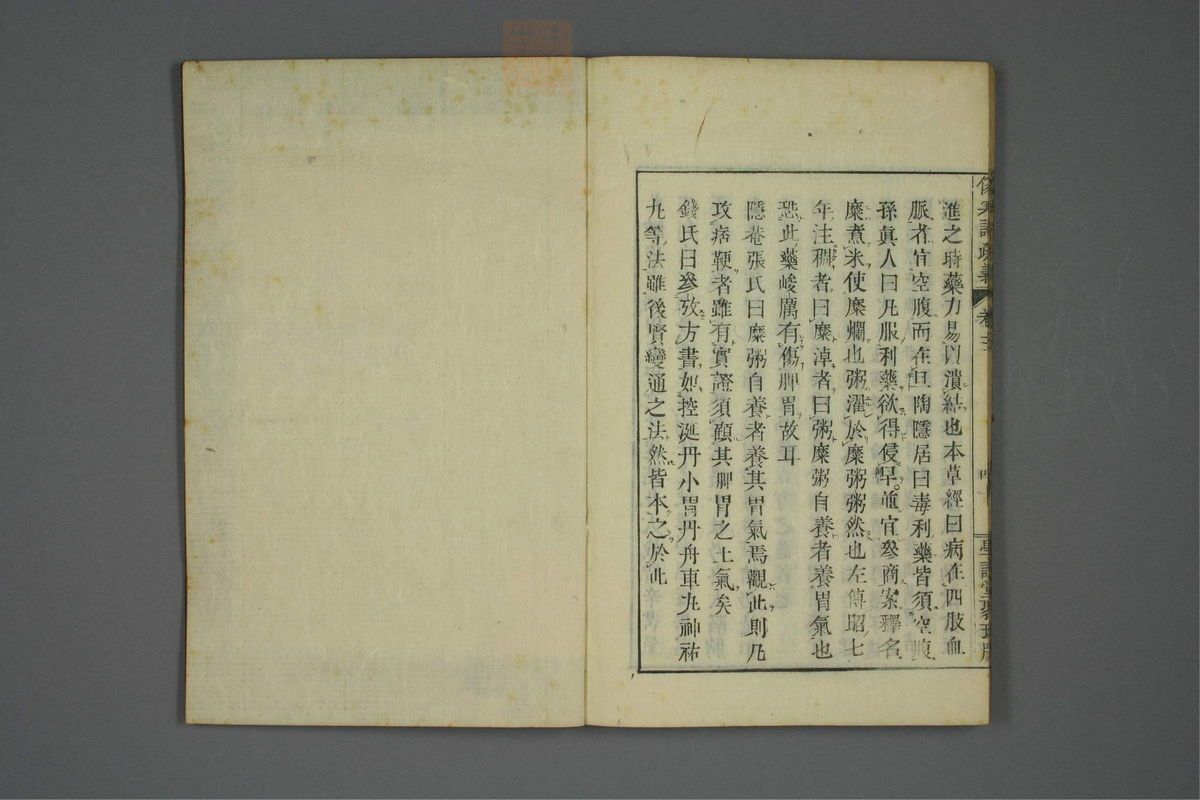 進之時藥力易以潰結也本草經曰病在四肢血
脈者宜空腹而在旦陶隱居曰毒利藥皆須空腹
孫眞人曰凡服利藥欲得侵早並宜參商案釋名
糜煮米使糜爛也粥濯於糜粥粥然也左傳昭七
年注稠者曰糜淖者曰粥糜粥自養者養胃氣也
恐此藥峻厲有傷脾胃故耳
隱菴張氏曰糜粥自養者養其胃氣焉觀此則凡
攻痞鞕者雖有實證須顧其脾胃之土氣矣
錢氏曰參攷方書如控涎丹小胃丹舟車丸神祐
丸等法雖後賢變通之法然皆本之於此
傷寒論疏義
卷三
學訓堂聚珍版